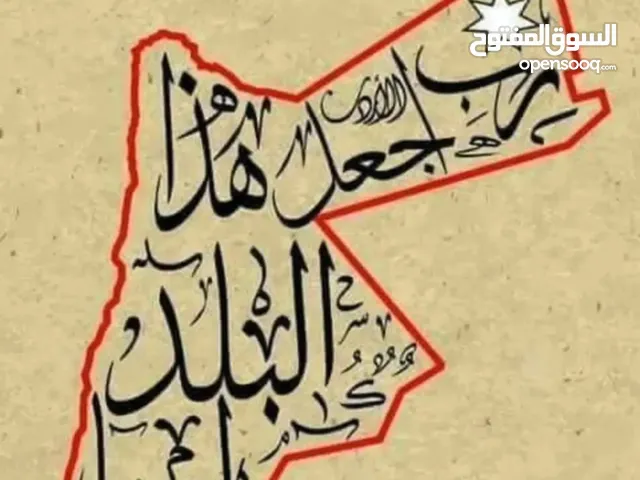 السوق المفتوح
opensooq.com
رب
اجعل هذا
الأردن
البلد